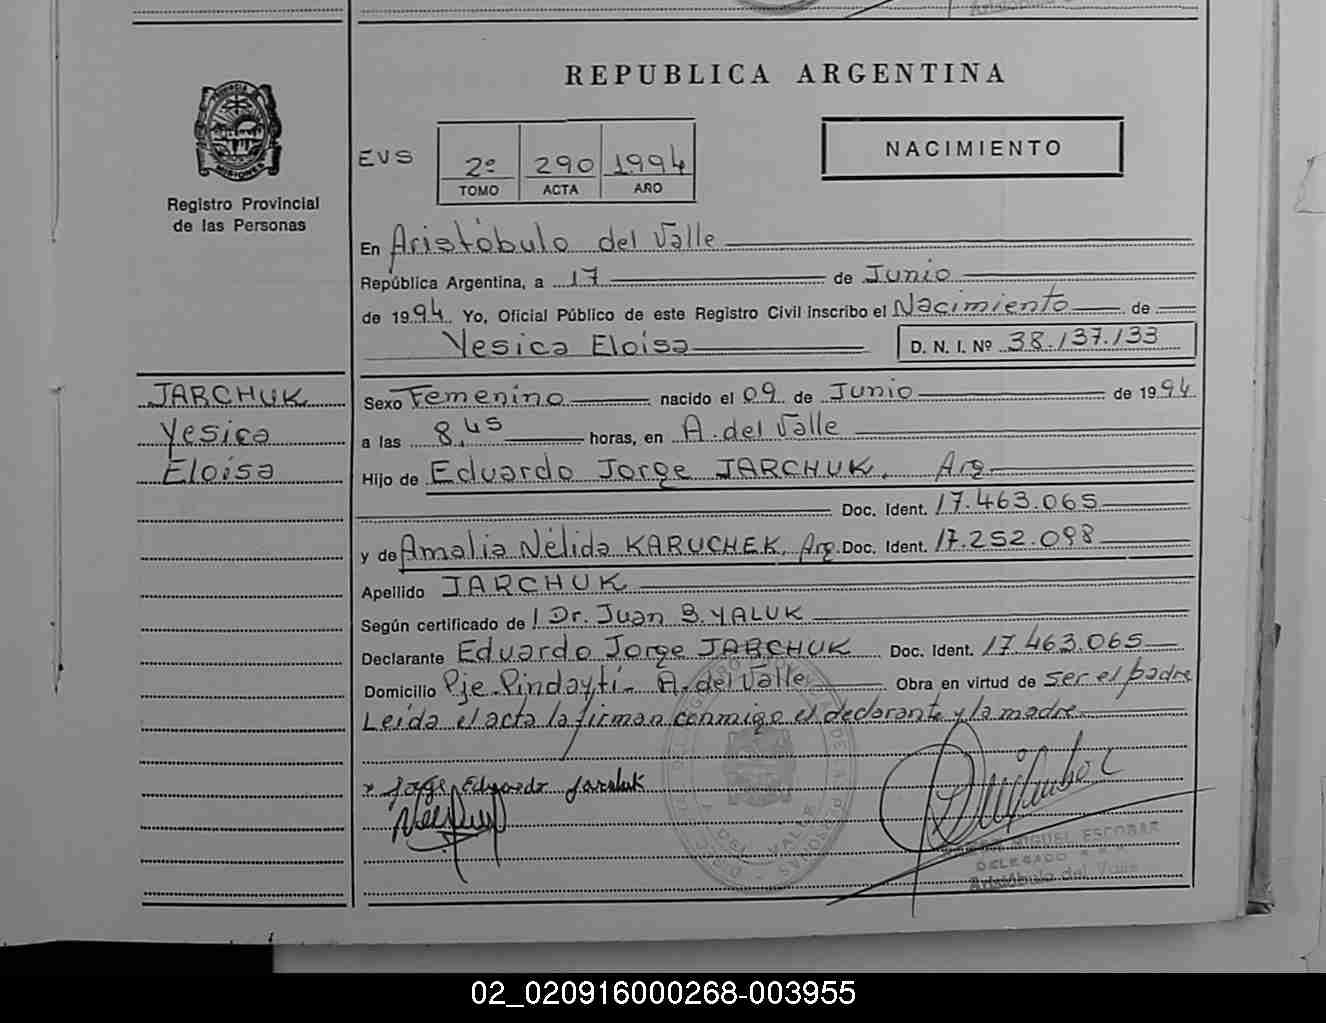 REPUBLICA ARGENTINA
MISIONES
Registro Provincial
de las Personas
EVS
2º 290 1994
TOMO ACTA AÑO
NACIMIENTO
En Aristóbulo del Valle
República Argentina, a 17 de Junio
de 1994 Yo, Oficial Público de este Registro Civil inscribo el Nacimiento de
Yesica Eloisa D. N. I. Nº 38.137.133
JARCHUK
Yesica
Eloisa
Sexo Femenino nacido el 09 de Junio de 1994
a las 8,45 horas, en A. del Valle
Hijo de Eduardo Jorge JARCHUK, Arg
Doc. Ident. 17.463.065
y de Amalia Nélida KARUCHEK, Arg. Doc. Ident. 17.252.098
Apellido JARCHUK
Según certificado de Dr. Juan B. YALUK
Declarante Eduardo Jorge JARCHUK Doc. Ident. 17.463.065
Domicilio Pje. Pindaytí - A. del Valle Obra en virtud de ser el padre
Leída el acta la firman conmigo el declarante y la madre
Jorge Eduardo Jarchuk
MIGUEL ESCOBAR
DELEGADO
Aristóbulo del Valle
02_020916000268-003955